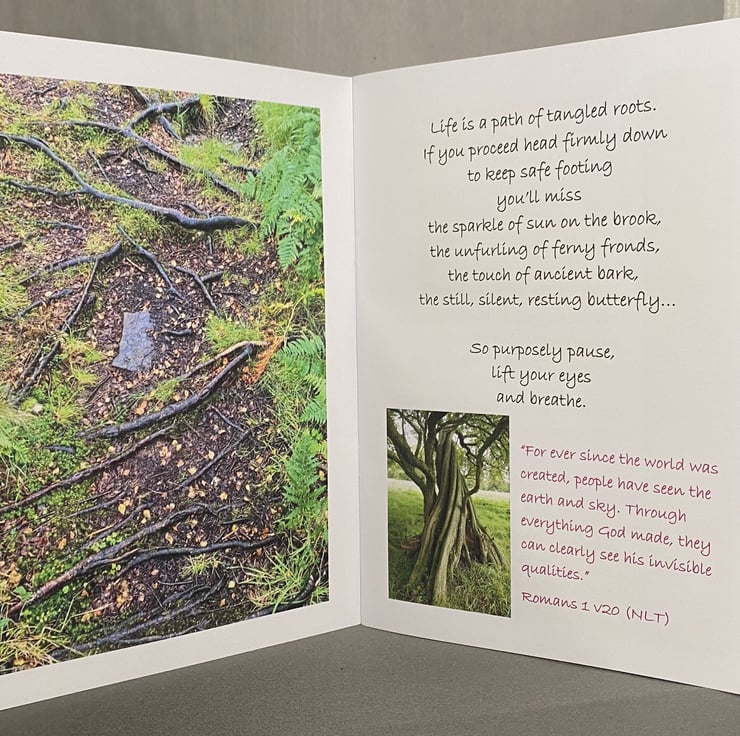 Life is a path of tangled roots.
If you proceed head firmly down
to keep safe footing
you'll miss
the sparkle of sun on the brook,
the unfurling of ferny fronds,
the touch of ancient bark,
the still, silent, resting butterfly...
So purposely pause,
lift your eyes
and breathe.
"For ever since the world was
created, people have seen the
earth and sky. Through
everything God made, they
can clearly see his invisible
qualities."
Romans 1 v20 (NLT)